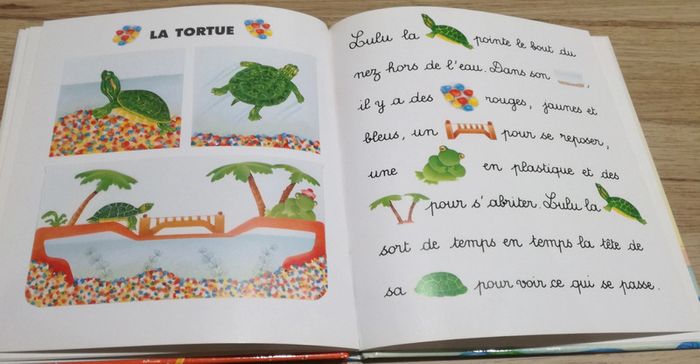 LA TORTUE
Lulu la pointe le bout du
nez hors de l'eau. Dans son ,
il y a des rouges, jaunes et
bleus, un pour se reposer,
une en plastique et des
pour s'abriter. Lulu la
sort de temps en temps la tête de
sa pour voir ce qui se passe.